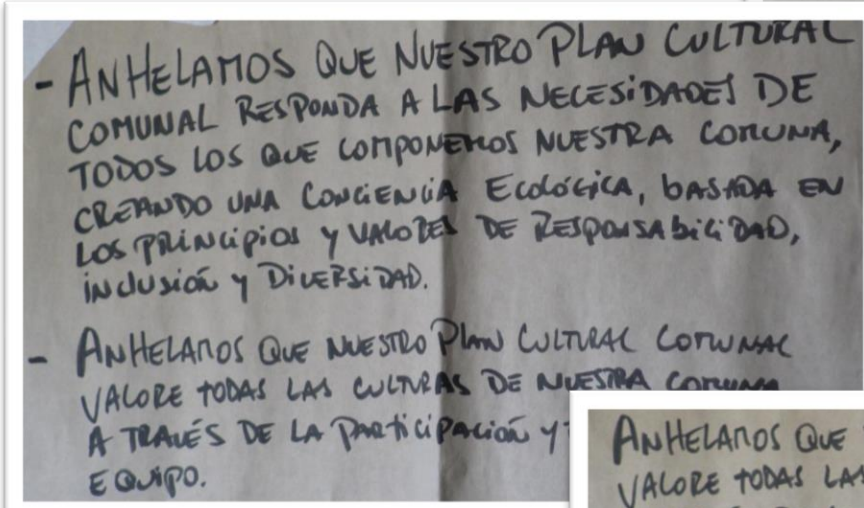 - ANHELAMOS QUE NUESTRO PLAN CULTURAL
COMUNAL RESPONDA A LAS NECESIDADES DE
TODOS LOS QUE COMPONEMOS NUESTRA COMUNA,
CREANDO UNA CONCIENCIA ECOLÓGICA, BASADA EN
LOS PRINCIPIOS Y VALORES DE RESPONSABILIDAD,
INCLUSIÓN Y DIVERSIDAD.
- ANHELAMOS QUE NUESTRO PLAN CULTURAL COMUNAL
VALORE TODAS LAS CULTURAS DE NUESTRA COMUNA
A TRAVÉS DE LA PARTICIPACIÓN Y
EQUIPO.
ANHELAMOS QUE
VALORE TODAS LAS